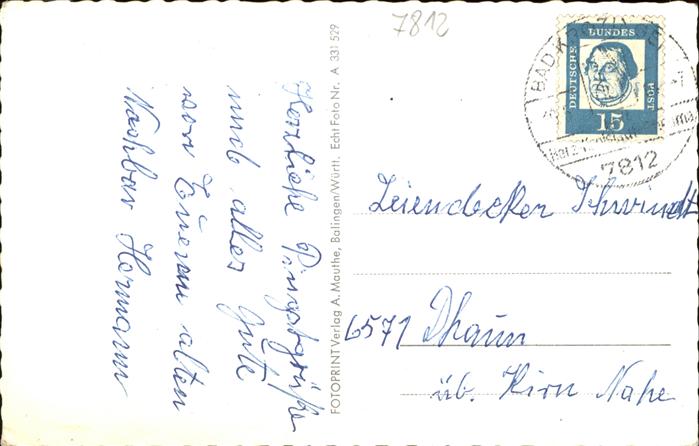 7812
Herzliche Pfingstgrüße
und alles Gute
von Euerem alten
Nachbar Hermann
FOTOPRINT Verlag A. Mauthe, Balingen/Württ. Echt Foto Nr. A 331 529
DEUTSCHE BUNDES POST
15
BAD KROZINGEN
7812
Leiendecker Schwindt
6571 Dhaun
üb. Kirn Nahe